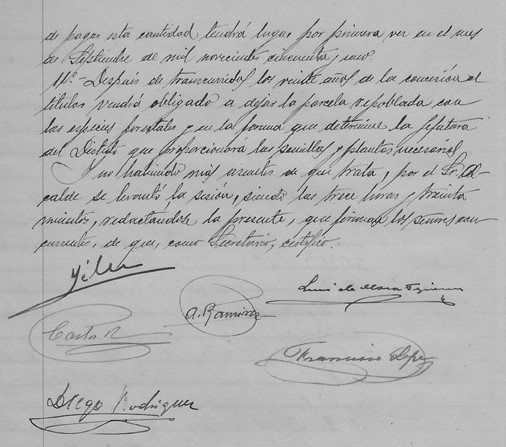 de pagar esta cantidad tendrá lugar por primera vez en el mes
de Septiembre de mil novecientos cincuenta y uno.
11º.- Después de transcurridos los veinte años de la concesión el
titular vendrá obligado a dejar la parcela repoblada con
las especies forestales y en la forma que determine la Jefatura
del Distrito que proporcionara las semillas y plantas necesarias.
Y no habiendo más asuntos de que tratar, por el Sr. Al-
calde se levantó la sesión, siendo las trece horas y treinta
minutos, redactandose la presente, que firman los señores con-
currentes, de que, como Secretario, certifico.
A. Ramirez
Luis de
Castro
Francisco Lopez
Diego Rodriguez